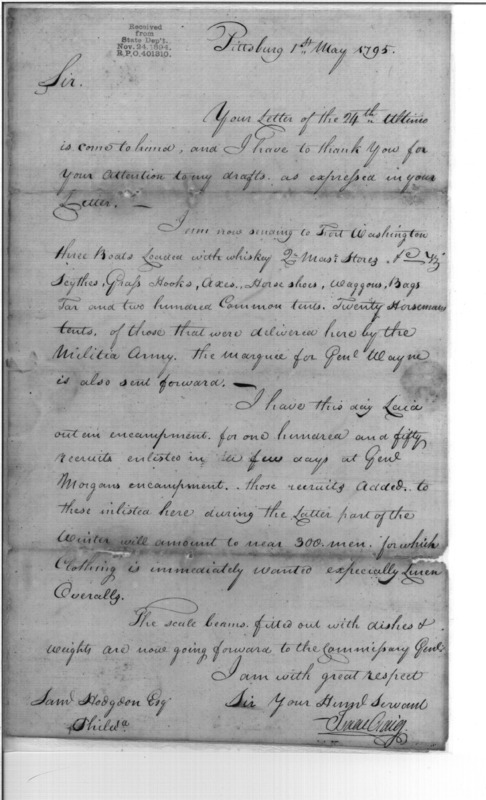 Received
from
State Dep't.
Nov. 24. 1894.
R.P.O. 401310.
Pittsburg 1st May 1795.
Sir.
Your Letter of the 24th Ultimo
is come to hand, and I have to thank You for
your attention to my drafts as expressed in your
Letter. —
I am now sending to Fort Washington
three Boats Loaded with whiskey Qr Masr Stores
Scythes, Grass Hooks, Axes, Horse shoes, Waggons, Bags
Tar and two hundred Common tents. Twenty Horsemans
tents. of those that were delivered here by the
Militia Army. the marquee for Genl Wayne
is also sent forward. —
I have this day Laid
out an encampment for one hundred and fifty
recruits enlisted in a few days at Genl
Morgans encampment. those recruits Added to
those inlisted here during the Latter part of the
Winter will amount to near 300 men. for which
Clothing is immediately wanted especially Linen
Overalls.
The scale beams fitted out with dishes &
weights are now going forward to the Commissary Genl
I am with great respect
Saml Hodgdon Esqr Sir Your Huml Servant
Philada Isaac Craig